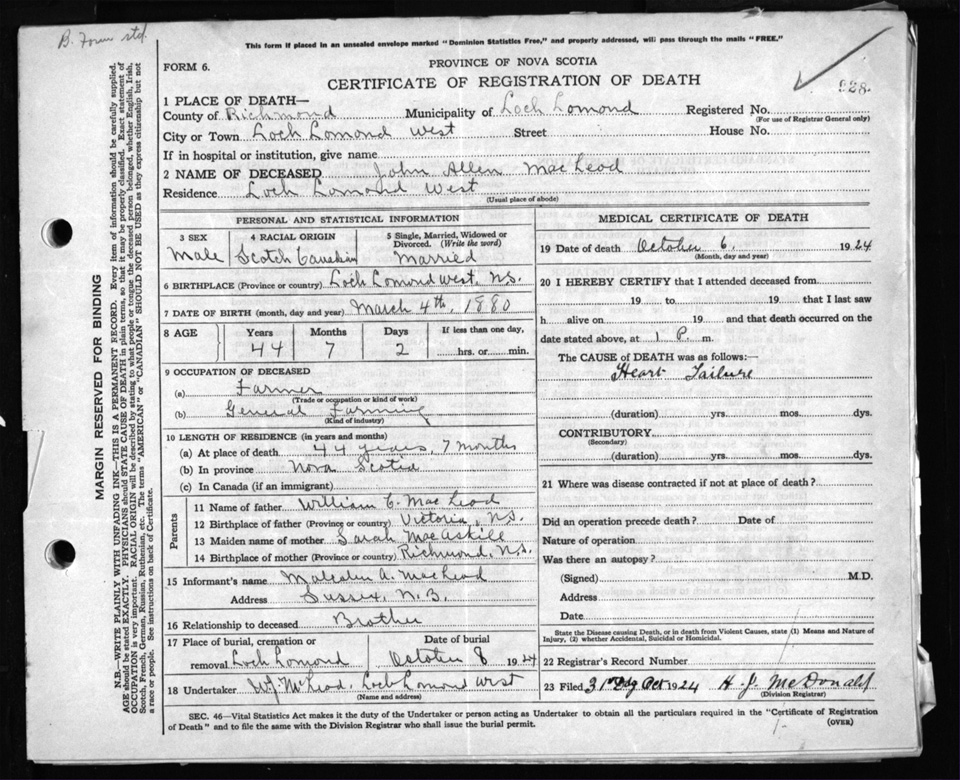 B. Form std.
This form if placed in an unsealed envelope marked "Dominion Statistics Free," and properly addressed, will pass through the mails "FREE."
FORM 6.
PROVINCE OF NOVA SCOTIA
CERTIFICATE OF REGISTRATION OF DEATH
928
1 PLACE OF DEATH—
County of Richmond Municipality of Loch Lomond Registered No.
(For use of Registrar General only)
City or Town Loch Lomond West Street House No.
If in hospital or institution, give name
2 NAME OF DECEASED John Allen MacLeod
Residence Loch Lomond West
(Usual place of abode)
PERSONAL AND STATISTICAL INFORMATION
3 SEX 4 RACIAL ORIGIN 5 Single, Married, Widowed or Divorced. (Write the word)
Male Scotch Married
6 BIRTHPLACE (Province or country) Loch Lomond West, N.S.
7 DATE OF BIRTH (month, day and year) March 4th, 1880
8 AGE Years Months Days If less than one day,
44 7 2 hrs. or min.
9 OCCUPATION OF DECEASED
(a) Farmer
(Trade or occupation or kind of work)
(b) General Farming
(Kind of industry)
10 LENGTH OF RESIDENCE (in years and months)
(a) At place of death 44 years, 7 months
(b) In province Nova Scotia
(c) In Canada (if an immigrant)
Parents
11 Name of father William C. MacLeod
12 Birthplace of father (Province or country) Victoria, N.S.
13 Maiden name of mother Sarah MacAskill
14 Birthplace of mother (Province or country) Richmond, N.S.
15 Informant's name Malcolm A. MacLeod
Address Sussex, N.B.
16 Relationship to deceased Brother
17 Place of burial, cremation or Date of burial
removal Loch Lomond October 8 1924
18 Undertaker W.J. McLeod, Loch Lomond West
(Name and address)
MEDICAL CERTIFICATE OF DEATH
19 Date of death October 6. 1924
(Month, day and year)
20 I HEREBY CERTIFY that I attended deceased from
19 to 19 that I last saw
h alive on 19 and that death occurred on the
date stated above, at 1 P. m.
The CAUSE of DEATH was as follows:—
Heart Failure
(duration) yrs. mos. dys.
CONTRIBUTORY
(Secondary)
(duration) yrs. mos. dys.
21 Where was disease contracted if not at place of death?
Did an operation precede death? Date of
Nature of operation
Was there an autopsy?
(Signed) M.D.
Address
Date
State the Disease causing Death, or in death from Violent Causes, state (1) Means and Nature of
Injury, (2) whether Accidental, Suicidal or Homicidal.
22 Registrar's Record Number
23 Filed 31st Day Oct 1924 H. J. McDonald
(Division Registrar)
SEC. 46—Vital Statistics Act makes it the duty of the Undertaker or person acting as Undertaker to obtain all the particulars required in the "Certificate of Registration
of Death" and to file the same with the Division Registrar who shall issue the burial permit. (OVER)
MARGIN RESERVED FOR BINDING
N.B.—WRITE PLAINLY WITH UNFADING INK—THIS IS A PERMANENT RECORD. Every item of information should be carefully supplied.
AGE should be stated EXACTLY. PHYSICIANS should STATE CAUSE OF DEATH in plain terms, so that it may be properly classified. Exact statement of
OCCUPATION is very important. RACIAL ORIGIN will be described by stating to what people or tongue the deceased person belonged, whether English, Irish,
Scotch, French, German, Russian, Ruthenian, etc. The terms "AMERICAN" or "CANADIAN" SHOULD NOT BE USED as they express citizenship but not
a race or people. See instructions on back of Certificate.